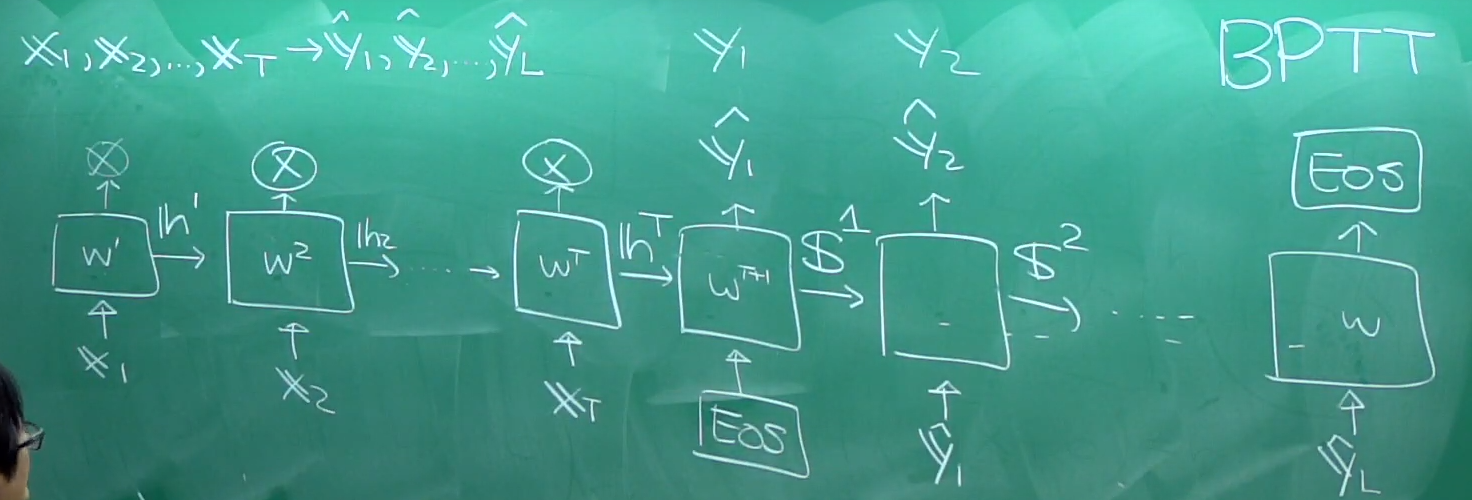 x₁, x₂, ..., x_T → ŷ₁, ŷ₂, ..., ŷ_L y₁ y₂ BPTT
ŷ₁ ŷ₂
⊗ ⊗ ⊗ EOS
w¹ h¹ w² h₂ ..... w^T h^T w^{T+1} $¹ $² ..... w
x₁ x₂ x_T EOS ŷ₁ ŷ_L